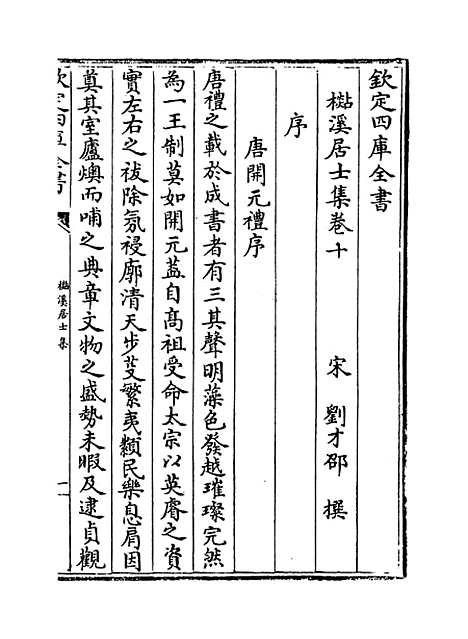 欽定四庫全書
檆溪居士集卷十
宋 劉才邵 撰
序
唐開元禮序
唐禮之載於成書者有三其聲明藻色發越璀璨完然
為一王制莫如開元葢自高祖受命太宗以英睿之資
實左右之祓除氛祲廓清天步芟繁夷纇民樂息肩因
奠其室廬燠而哺之典章文物之盛勢未暇及逮貞觀
欽定四庫全書
檆溪居士集
一